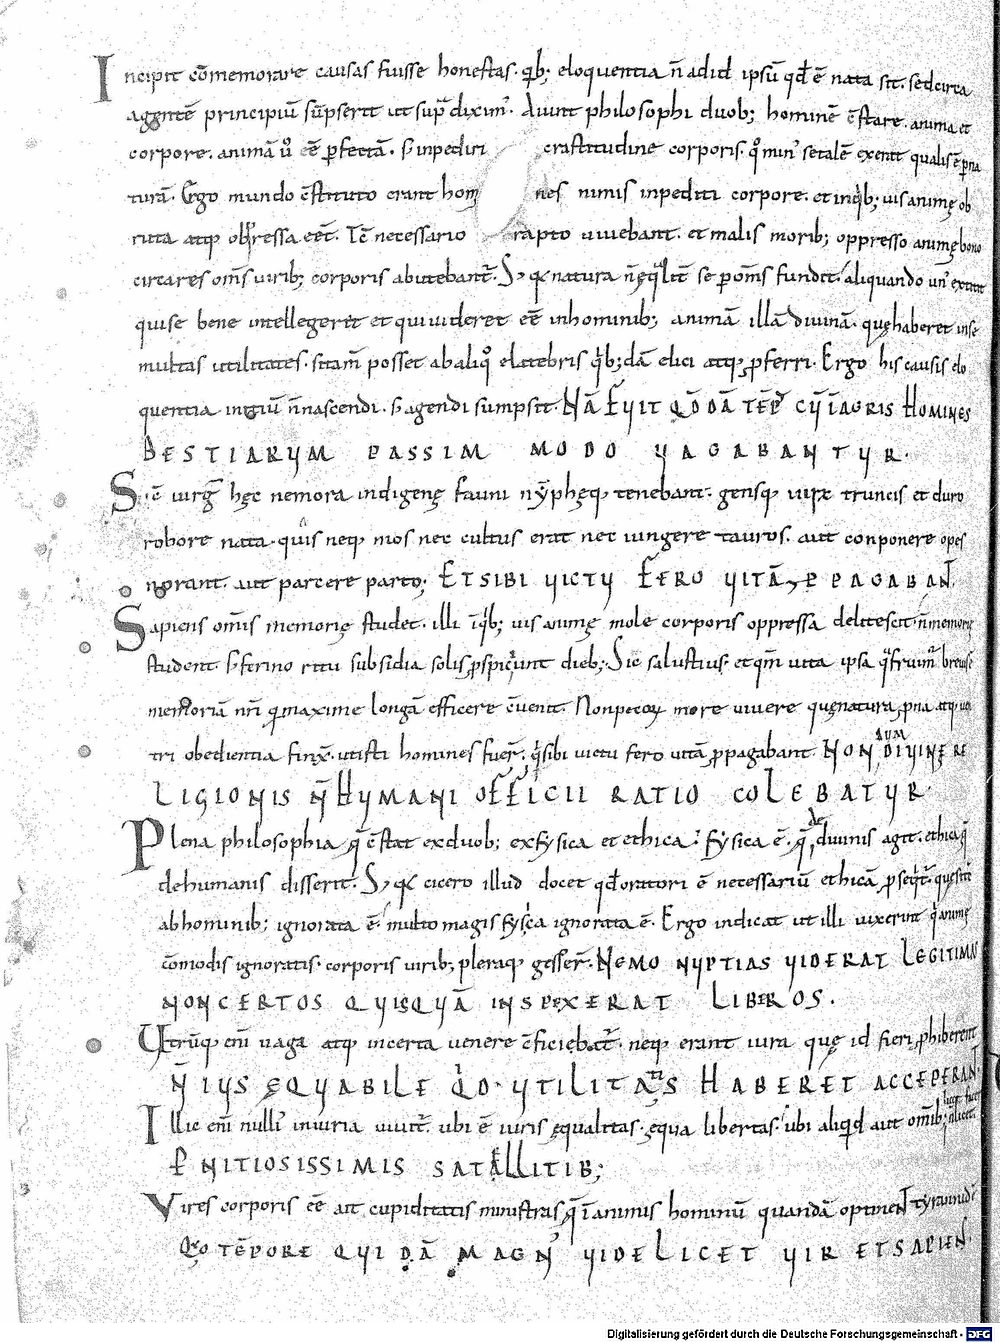 Incipit cōmemorare causas fuisse honestas. qib; eloquentia n̄ ad id ipsū qđ ē nata sit. sed circa
agentē principiū sūpserit ut sup̄ diximꝰ. Aiunt philosophi duob; hominē c̄stare. anima et
corpore. animā ů eē ꝑfectā. s; inpediri crassitudine corporis. qͦ minꝰ se talē exerit qualis ē ꝑ na
turā. Ergo mundo c̄stituto erant homines nimis inpediti corpore. et in qͥb; uis animę ob
ruta atq; obpressa eēt. Tē necessario rapto uiuebant. et malis morib; oppresso animę bono
circa res om̄s uirib; corporis abutebant᷑. S; q natura n̄ eqͣlit᷑ se ꝑ om̄s fundit. aliquando unꝰ extitit
qui se bene intellegeret et qui uideret eē in hominib; animā illā diuinā. quę haberet in se
multas utilitates. si tam̄ posset ab aliqͦ e latebris qͥb;dā elici atq; ꝓferri. Ergo his causis elo
quentia initiū n̄ nascendi. s; agendi sumpsit. NĀ FUIT QĐDĀ TĒP CŪ IN AGRIS HOMINES
BESTIARUM PASSIM MODO UAGABANTUR.
Sic̄ uirgꝉ hęc nemora indigenę fauni nȳphęq; tenebant. gensq; uirū truncis et duro
robore nata. quis neq; mos nec cultus erat nec iungere tauros. aut conponere opes
norant. aut parcere parto; ET SIBI UICTU FERO UITĀ PPAGABANT.
Sapiens om̄is memorię studet. illi iqͥb; uis animę mole corporis oppressa delitescit. n̄ memorię
student s; ferino ritu subsidia solis ꝓspiciunt dieb; Sic salustius. et qm̄ uita ipsa qͣ fruimꝰ breuis ē
memoriā nr̄i qͣ maxime longā efficere c̄uenit. Non pecorū more uiuere quę natura ꝓna atq; uen
tri obedientia finx̄. ut isti homines fuer̄. qͥ sibi uictu fero uitā ꝓpagabant. NONDUM DIUINĘ RE
LIGIONIS N̄ HUMANI OFFICII RATIO COLEBATUR.
Plena philosophia q̄ c̄stat ex duob; ex fysica et ethica. Fysica ē. q̄ de diuinis agit. ethica q̄
de humanis disserit. S; q cicero illud docet qđ oratori ē necessariū ethicā ꝓseqͥt᷑. quę si
ab hominib; ignorata ē. multo magis fysica ignorata ē. Ergo indicat ut illi uixerint qͥ animę
cōmodis ignoratis. corporis uirib; pleraq; gesser̄. NEMO NUPTIAS UIDERAT LEGITIMAS
NON CERTOS QUISQUĀ INSPEXERAT LIBEROS.
Utrūq; eni̅ uaga atq; incerta uenere c̄ficiebat᷑. neq; erant iura quę id fieri ꝓhiberent
N̄ IUS ĘQUABILE QĐ UTILITATIS HABERET ACCEPERANT.
Illic eni̅ nulliꝰ iniuria uiuit᷑. ubi ē iuris ęqualitas. ęqua libertas. ubi aliqid aut om̄ib; licet
PNITIOSISSIMIS SATELLITIB;
Vires corporis eē ait cupiditatis ministras q̄ in animis hominū quandā optinent tyrannidē
QͦO TĒPORE QUIDĀ MAGNꝰ UIDELICET UIR ET SAPIENS.
Digitalisierung gefördert durch die Deutsche Forschungsgemeinschaft - DFG